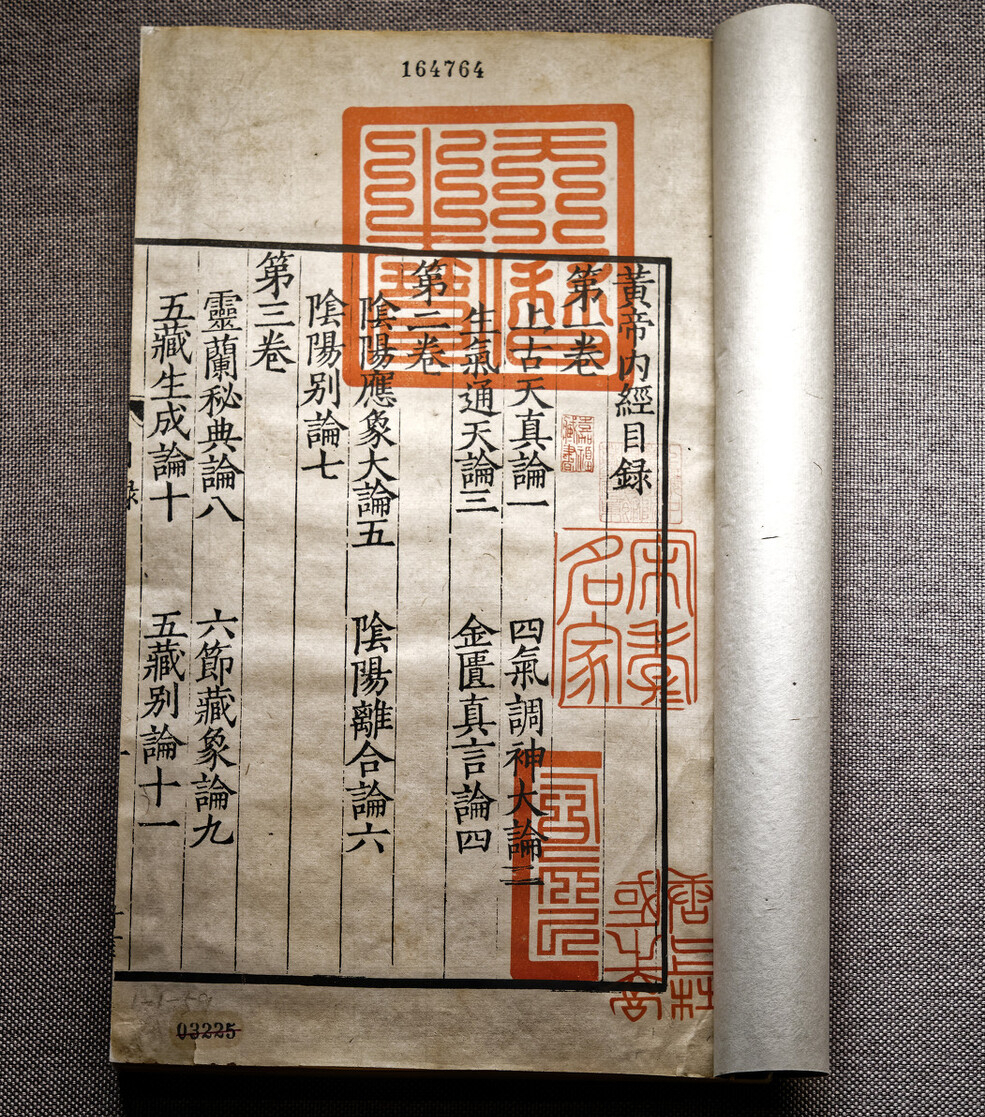 164764
黃帝内經目録
第一卷
上古天真論一 四氣調神大論二
生氣通天論三 金匱真言論四
第二卷
陰陽應象大論五 陰陽離合論六
陰陽别論七
第三卷
靈蘭秘典論八 六節藏象論九
五藏生成論十 五藏别論十一
03225